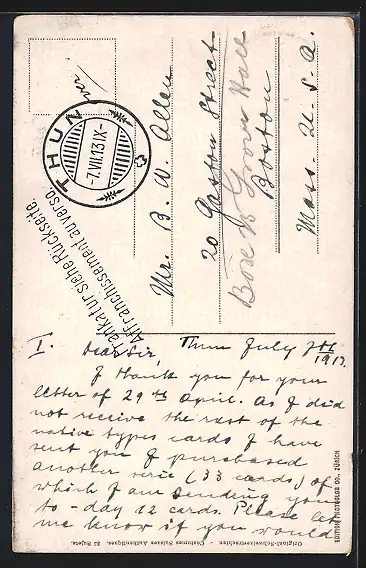 over.
THUN
-7.VII.13.IX-
Frankatur siehe Rückseite.
Affranchissement au verso.
Mr. B. W. Allen
20 Gaston Street
Grove Hall
Boston
Mass. U. S. A.
I. Dear Sir, Thun July 7th 1913.
I thank you for your
letter of 29th April. As I did
not receive the rest of the
native types cards I have
sent you I purchased
another serie (33 cards) of
which I am sending you
to-day 12 cards. Please let
me know if you would
Original-Schweizertrachten - Costumes Suisses Authentiques. 33 Sujets.
EDITION PHOTOGLOB CO., ZÜRICH